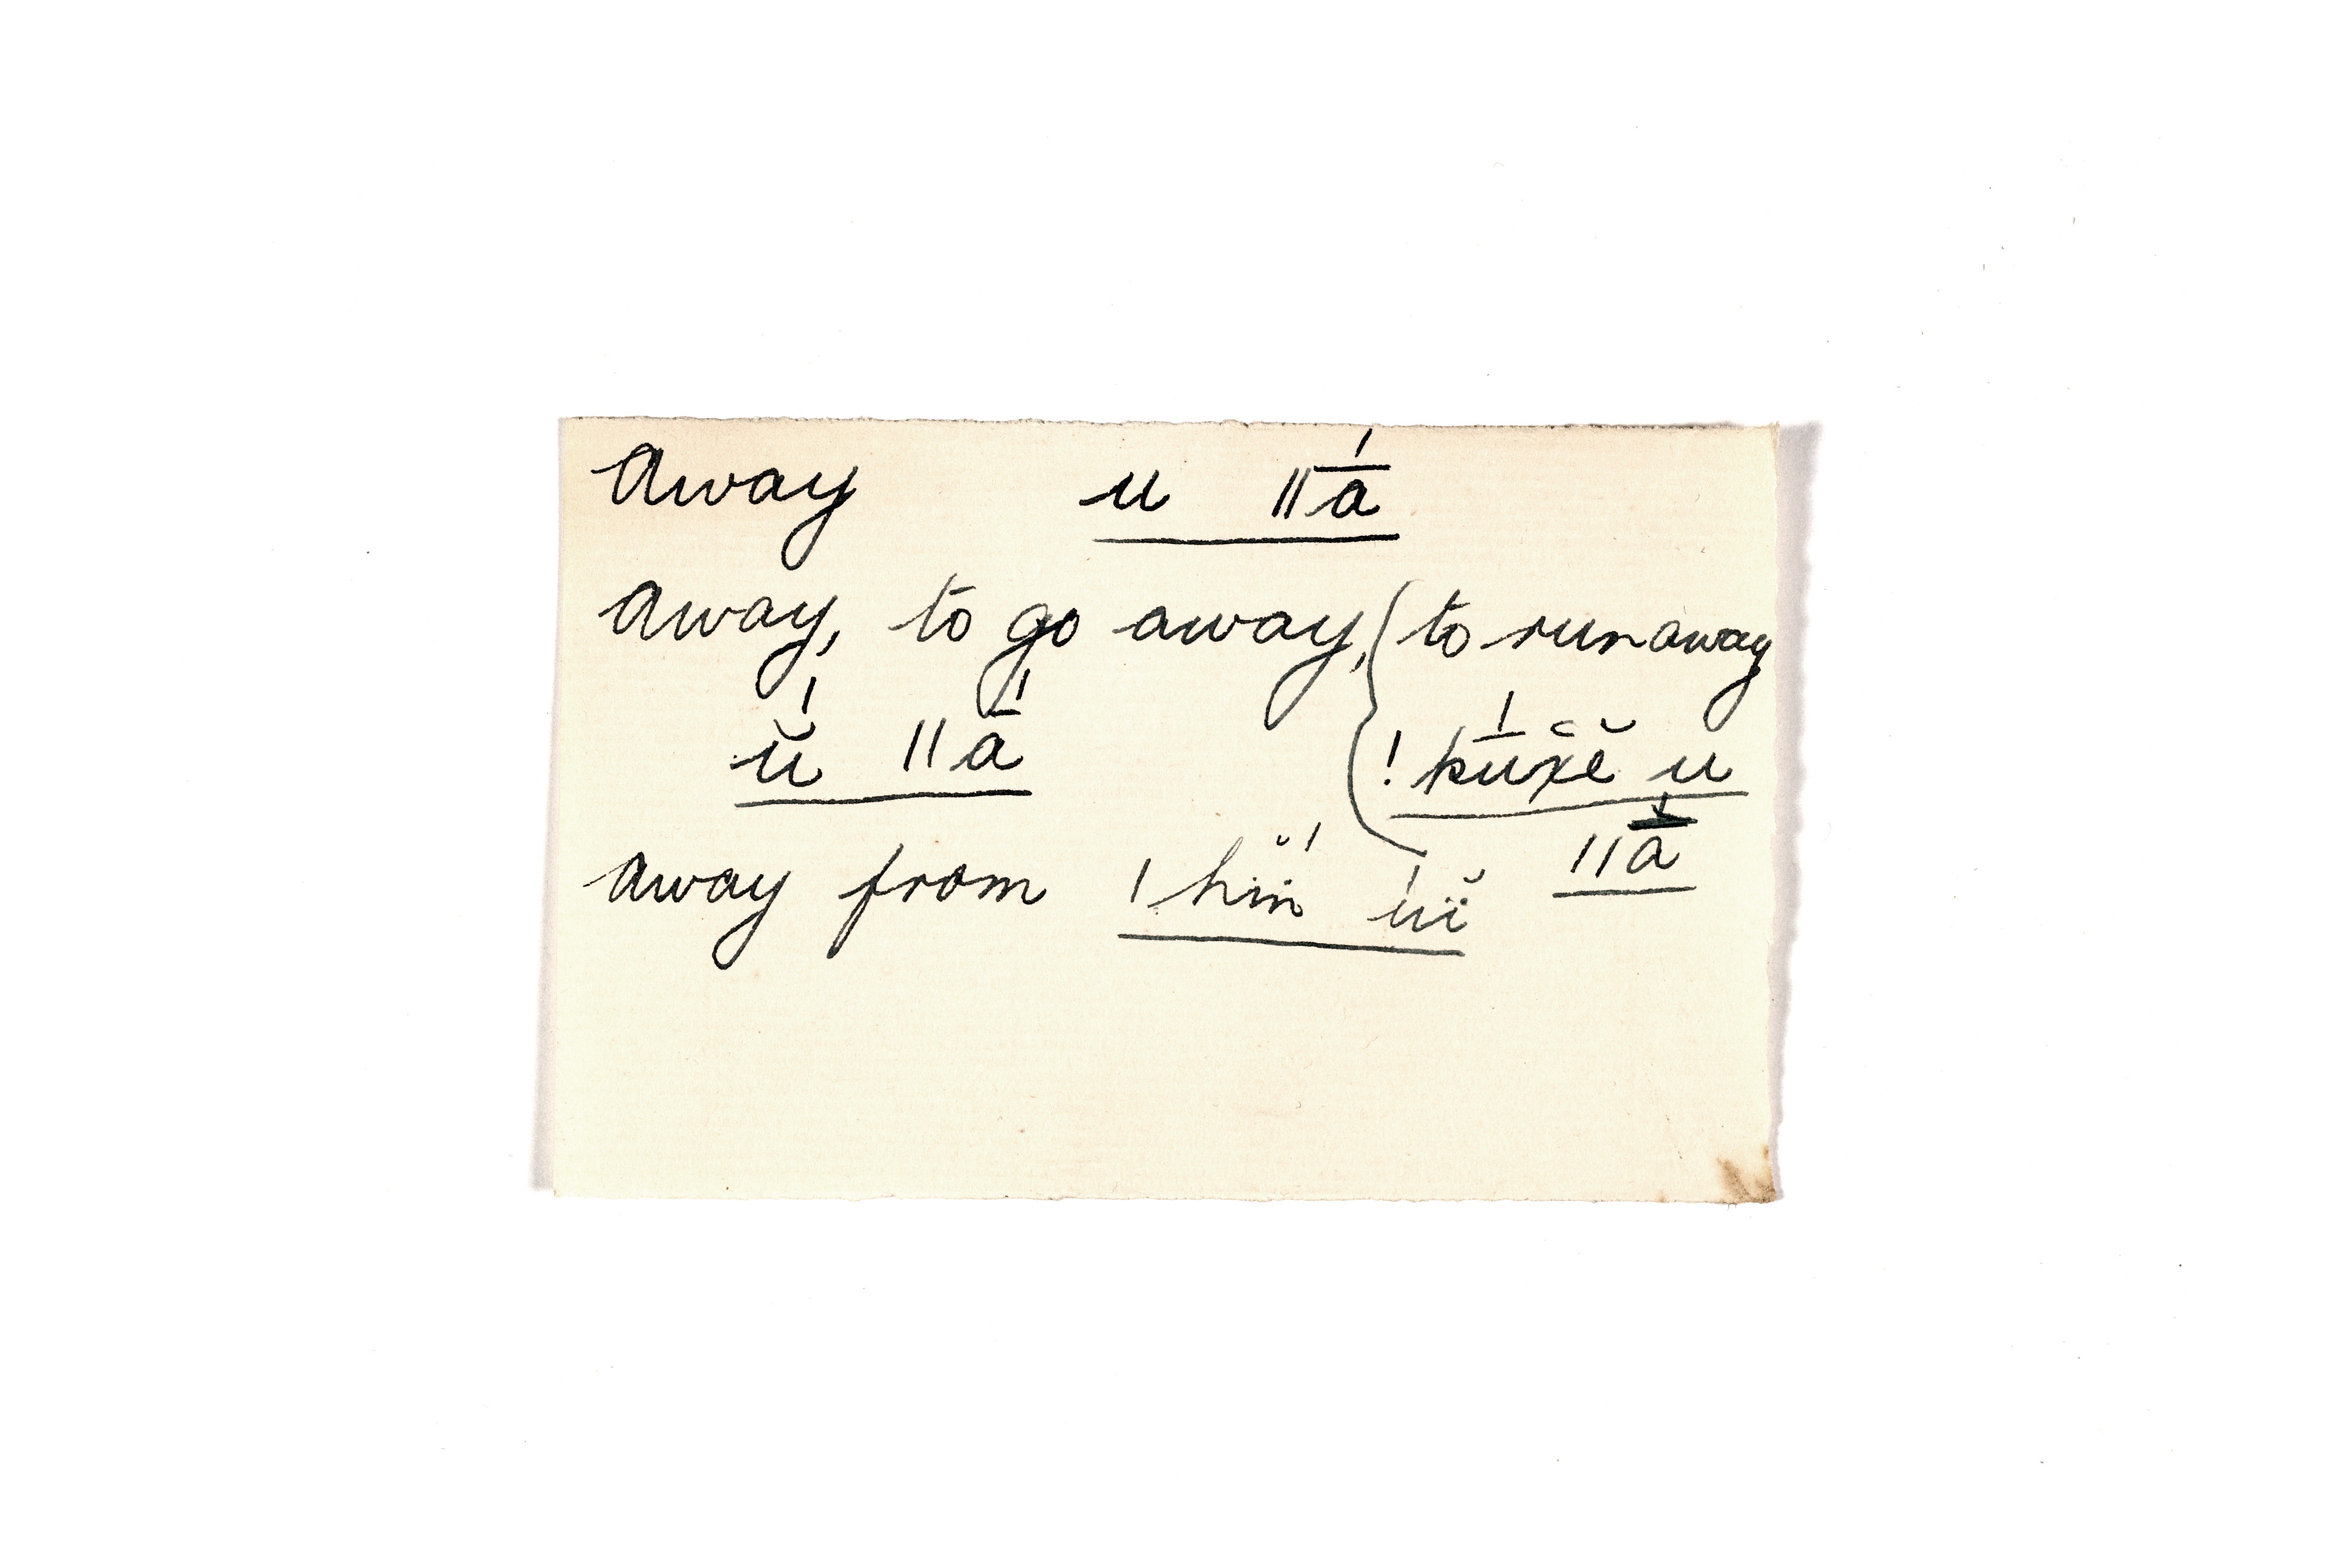 Away u ǁā́
Away, to go away, { to run away
ŭ́ ǁā́ ! kū́x̆ĕ u
ǁā́
Away from ǀhĭ́n̈ úï̆